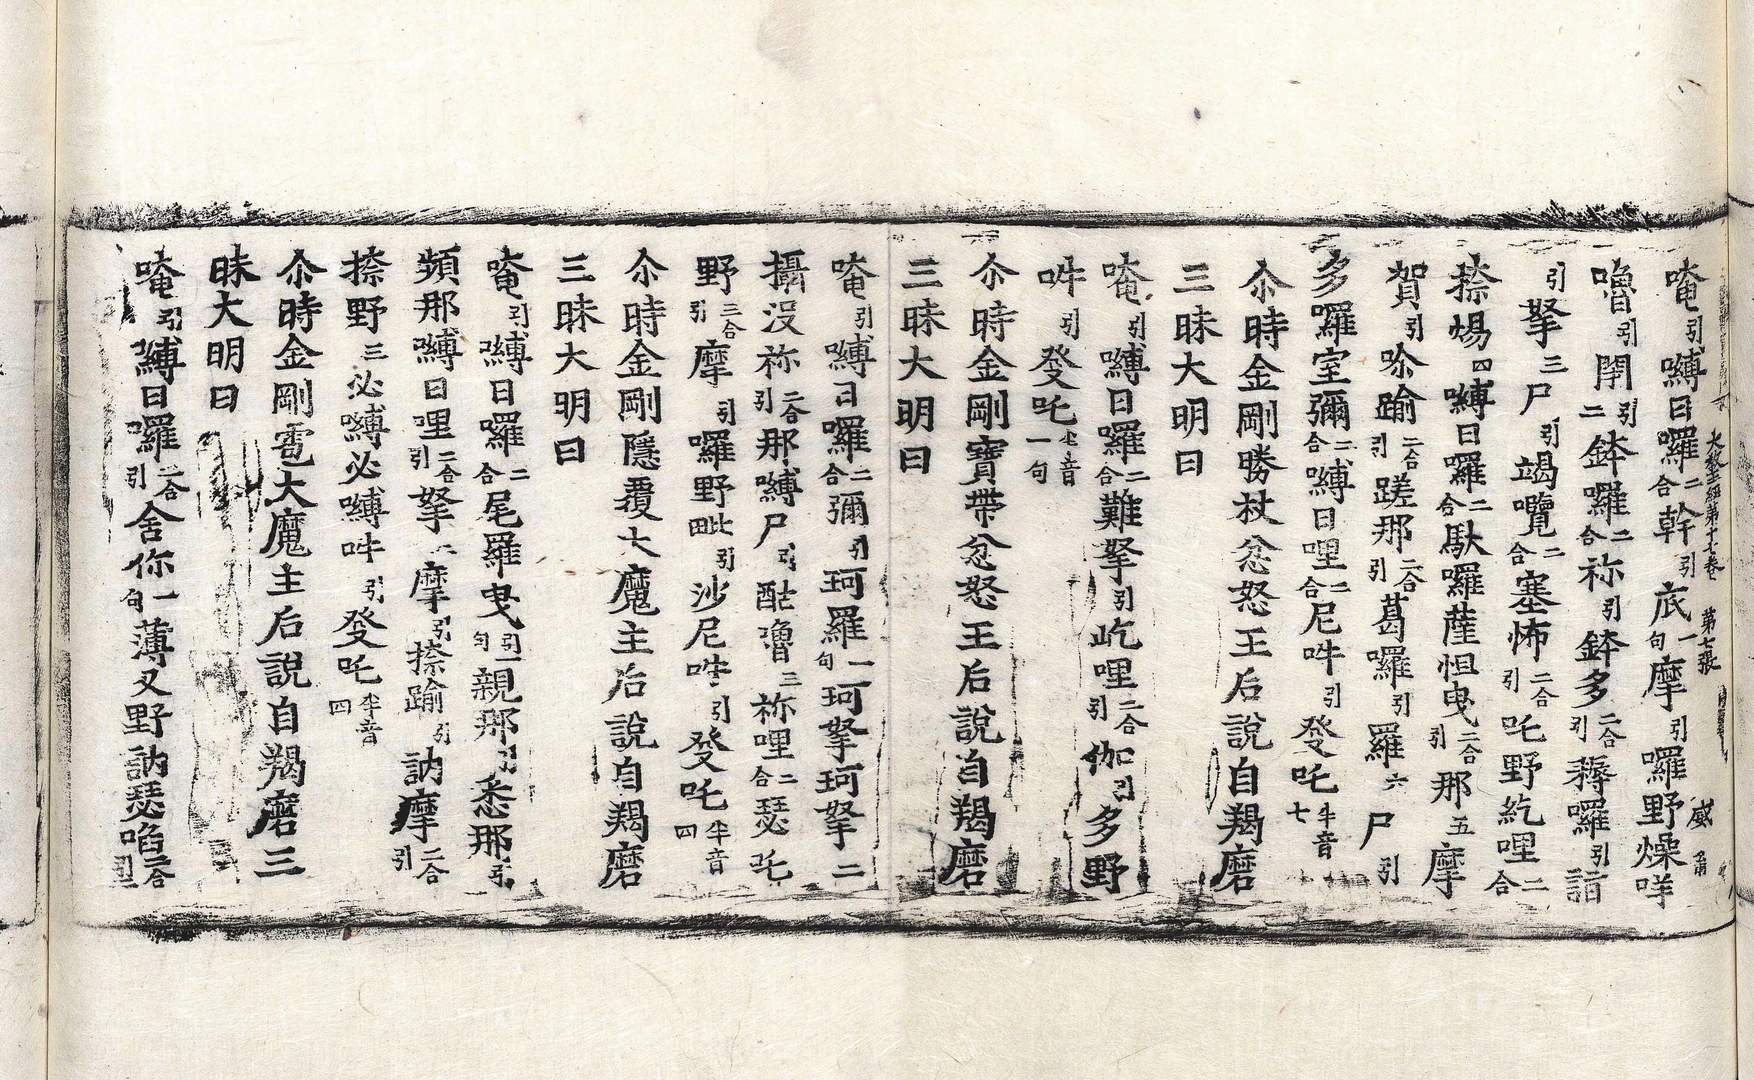 大敎王經第十七卷 第七張 威
唵引嚩日囉二合幹引底一句摩引囉野燥咩
嚕引閉引二鉢囉二合祢引鉢多二合引耨囉引詣
引拏三尸引竭囕二合塞怖二合引吒野紇哩二合
捺煬四嚩日囉二合馱囉薩怛曳二合引那五摩
賀引唹踰二合引蹉那二合引葛囉引羅六尸引
多囉室彌二合嚩日哩二合尼吽引癹吒半音七
尒時金剛勝杖忿怒王后說自羯磨
三昧大明曰
唵引嚩日囉二合難拏引屹哩二合引伽引多野
吽引癹吒半音一句
尒時金剛寶帶忿怒王后說自羯磨
三昧大明曰
唵引嚩日囉二合彌引珂羅一句珂拏珂拏二
攝沒祢二合引那嚩尸引酤嚕三祢哩二合瑟吒
野三合引摩引囉野四毗引沙尼吽引癹吒半音四
尒時金剛隱覆大魔主后說自羯磨
三昧大明曰
唵引嚩日囉二合尾羅曳引一句親那引悉那引
頻那嚩日哩二合引拏二摩引捺踰引訥摩二合引
捺野三必嚩必嚩吽引癹吒半音四
尒時金剛雹大魔主后說自羯磨三
昧大明曰
唵引嚩日囉二合引舍你一句薄叉野訥瑟啗二合引